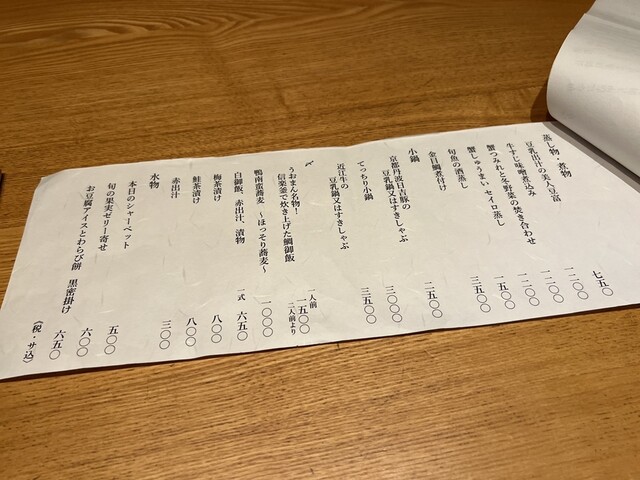 蒸し物・煮物
豆乳出汁の美人豆富 七五〇
牛すじ味噌煮込み 一二〇〇
蟹つみれと冬野菜の焚き合わせ 一二〇〇
蟹しゅうまい セイロ蒸し 一二〇〇
旬魚の酒蒸し 一五〇〇
金目鯛煮付け 三五〇〇
小鍋
京都丹波日吉豚の
豆乳鍋又はすきしゃぶ 二五〇〇
てっちり小鍋 三〇〇〇
近江牛の
豆乳鍋又はすきしゃぶ 三五〇〇
〆
うおまん名物！
信楽釜で炊き上げた鯛御飯 一人前 一五〇〇 二人前より
鴨南蛮蕎麦 〜ほっそり蕎麦〜 一〇〇〇
白御飯、赤出汁、漬物 一式 六五〇
梅茶漬け 八〇〇
鮭茶漬け 八〇〇
赤出汁 三〇〇
水物
本日のシャーベット 五〇〇
旬の果実ゼリー寄せ 六〇〇
お豆腐アイスとわらび餅 黒密掛け 六五〇
（税・サ込）